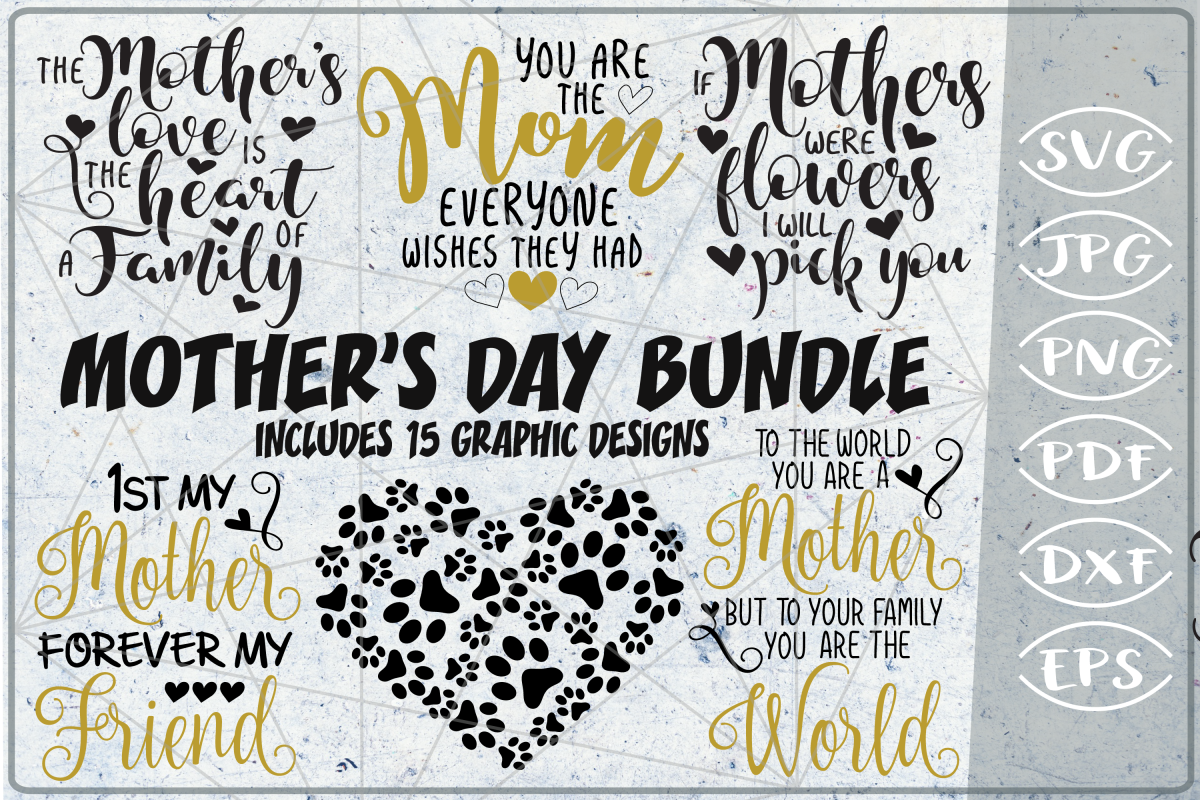 THE Mother's
love IS
THE heart
OF
A Family
YOU ARE
THE
Mom
EVERYONE
WISHES THEY HAD
IF Mothers
WERE
flowers
I WILL
pick you
MOTHER'S DAY BUNDLE
INCLUDES 15 GRAPHIC DESIGNS
1ST MY
Mother
FOREVER MY
Friend
TO THE WORLD
YOU ARE A
Mother
BUT TO YOUR FAMILY
YOU ARE THE
World
SVG
JPG
PNG
PDF
DXF
EPS